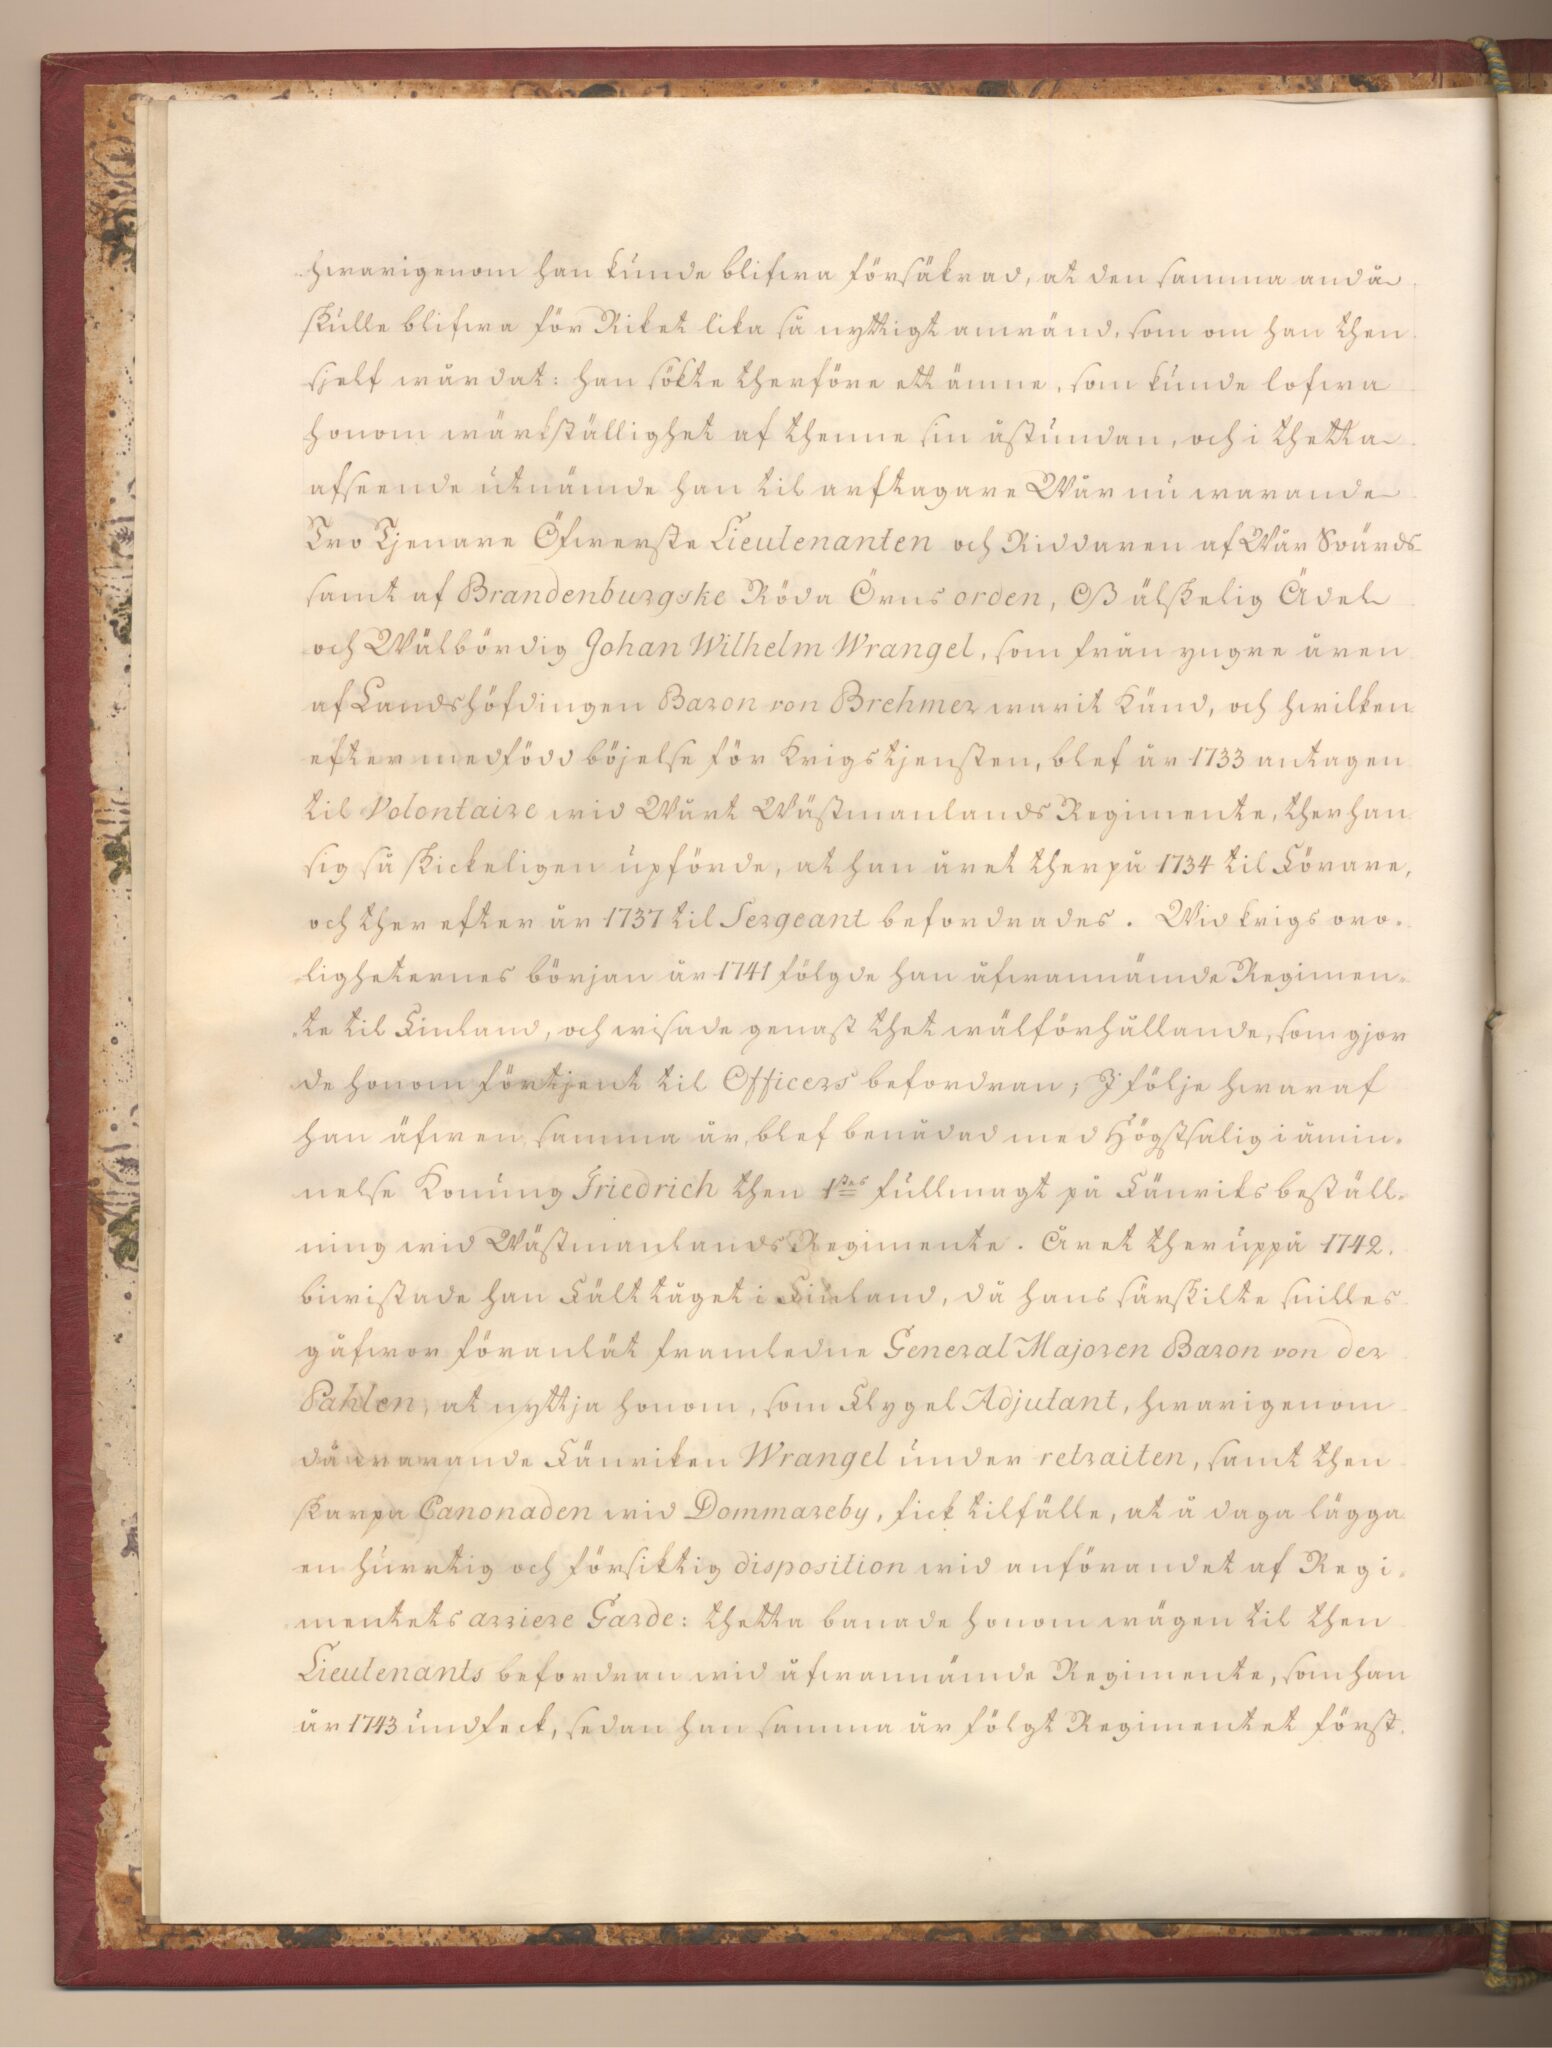 hwarigenom han kunde blifwa försäkrad, at den samma andå
skulle blifwa för Riket lika så nyttigt anwänd, som om han then
sjelf wårdat: han sökte therföre ett ämne, som kunde lofwa
honom wärkställighet af thenne sin åstundan, och i thetta
afseende utnämde han til arftagare Wår nu warande
Tro Tjenare Öfwerste Lieutenanten och Riddaren af Wår Svärds-
samt af Brandenburgske Röda Örns orden, Oss älskelig Ädel
och Wälbördig Johan Wilhelm Wrangel, som från yngre åren
af Landshöfdingen Baron von Brehmer warit känd, och hwilken
efter medfödd böjelse för Krigstjensten, blef år 1733 antagen
til Volontaire wid Wårt Wästmanlands Regimente, ther han
sig så skickeligen upförde, at han året therpå 1734 til Förare,
och ther efter år 1737 til Sergeant befordrades. Wid krigs oro-
ligheternes början år 1741 fölgde han åfwannämde Regimen-
te til Finland, och wisade genast thet wälförhållande, som gjor
de honom förtjent til Officers befordran; I följe hwaraf
han äfwen samma år, blef benådad med Högstsalig i åmin-
nelse Konung Friedrich then 1stes fullmagt på Fänriks beställ-
ning wid Wästmanlands Regimente. Året ther uppå 1742.
biwistade han Fält tåget i Finland, då hans särskilte snilles
gåfwor föranlät framledne General Majoren Baron von der
Pahlen, at nyttja honom, som Flygel Adjutant, hwarigenom
då warande Fänriken Wrangel under retraiten, samt then
skarpa Canonaden wid Dommareby, fick tilfälle, at å daga lägga
en hurtig och försiktig disposition wid anförandet af Regi-
mentets arriere Garde: thetta banade honom wägen til then
Lieutenants befordran wid åfwannämde Regimente, som han
år 1743 undfeck, sedan han samma år fölgt Regimentet först